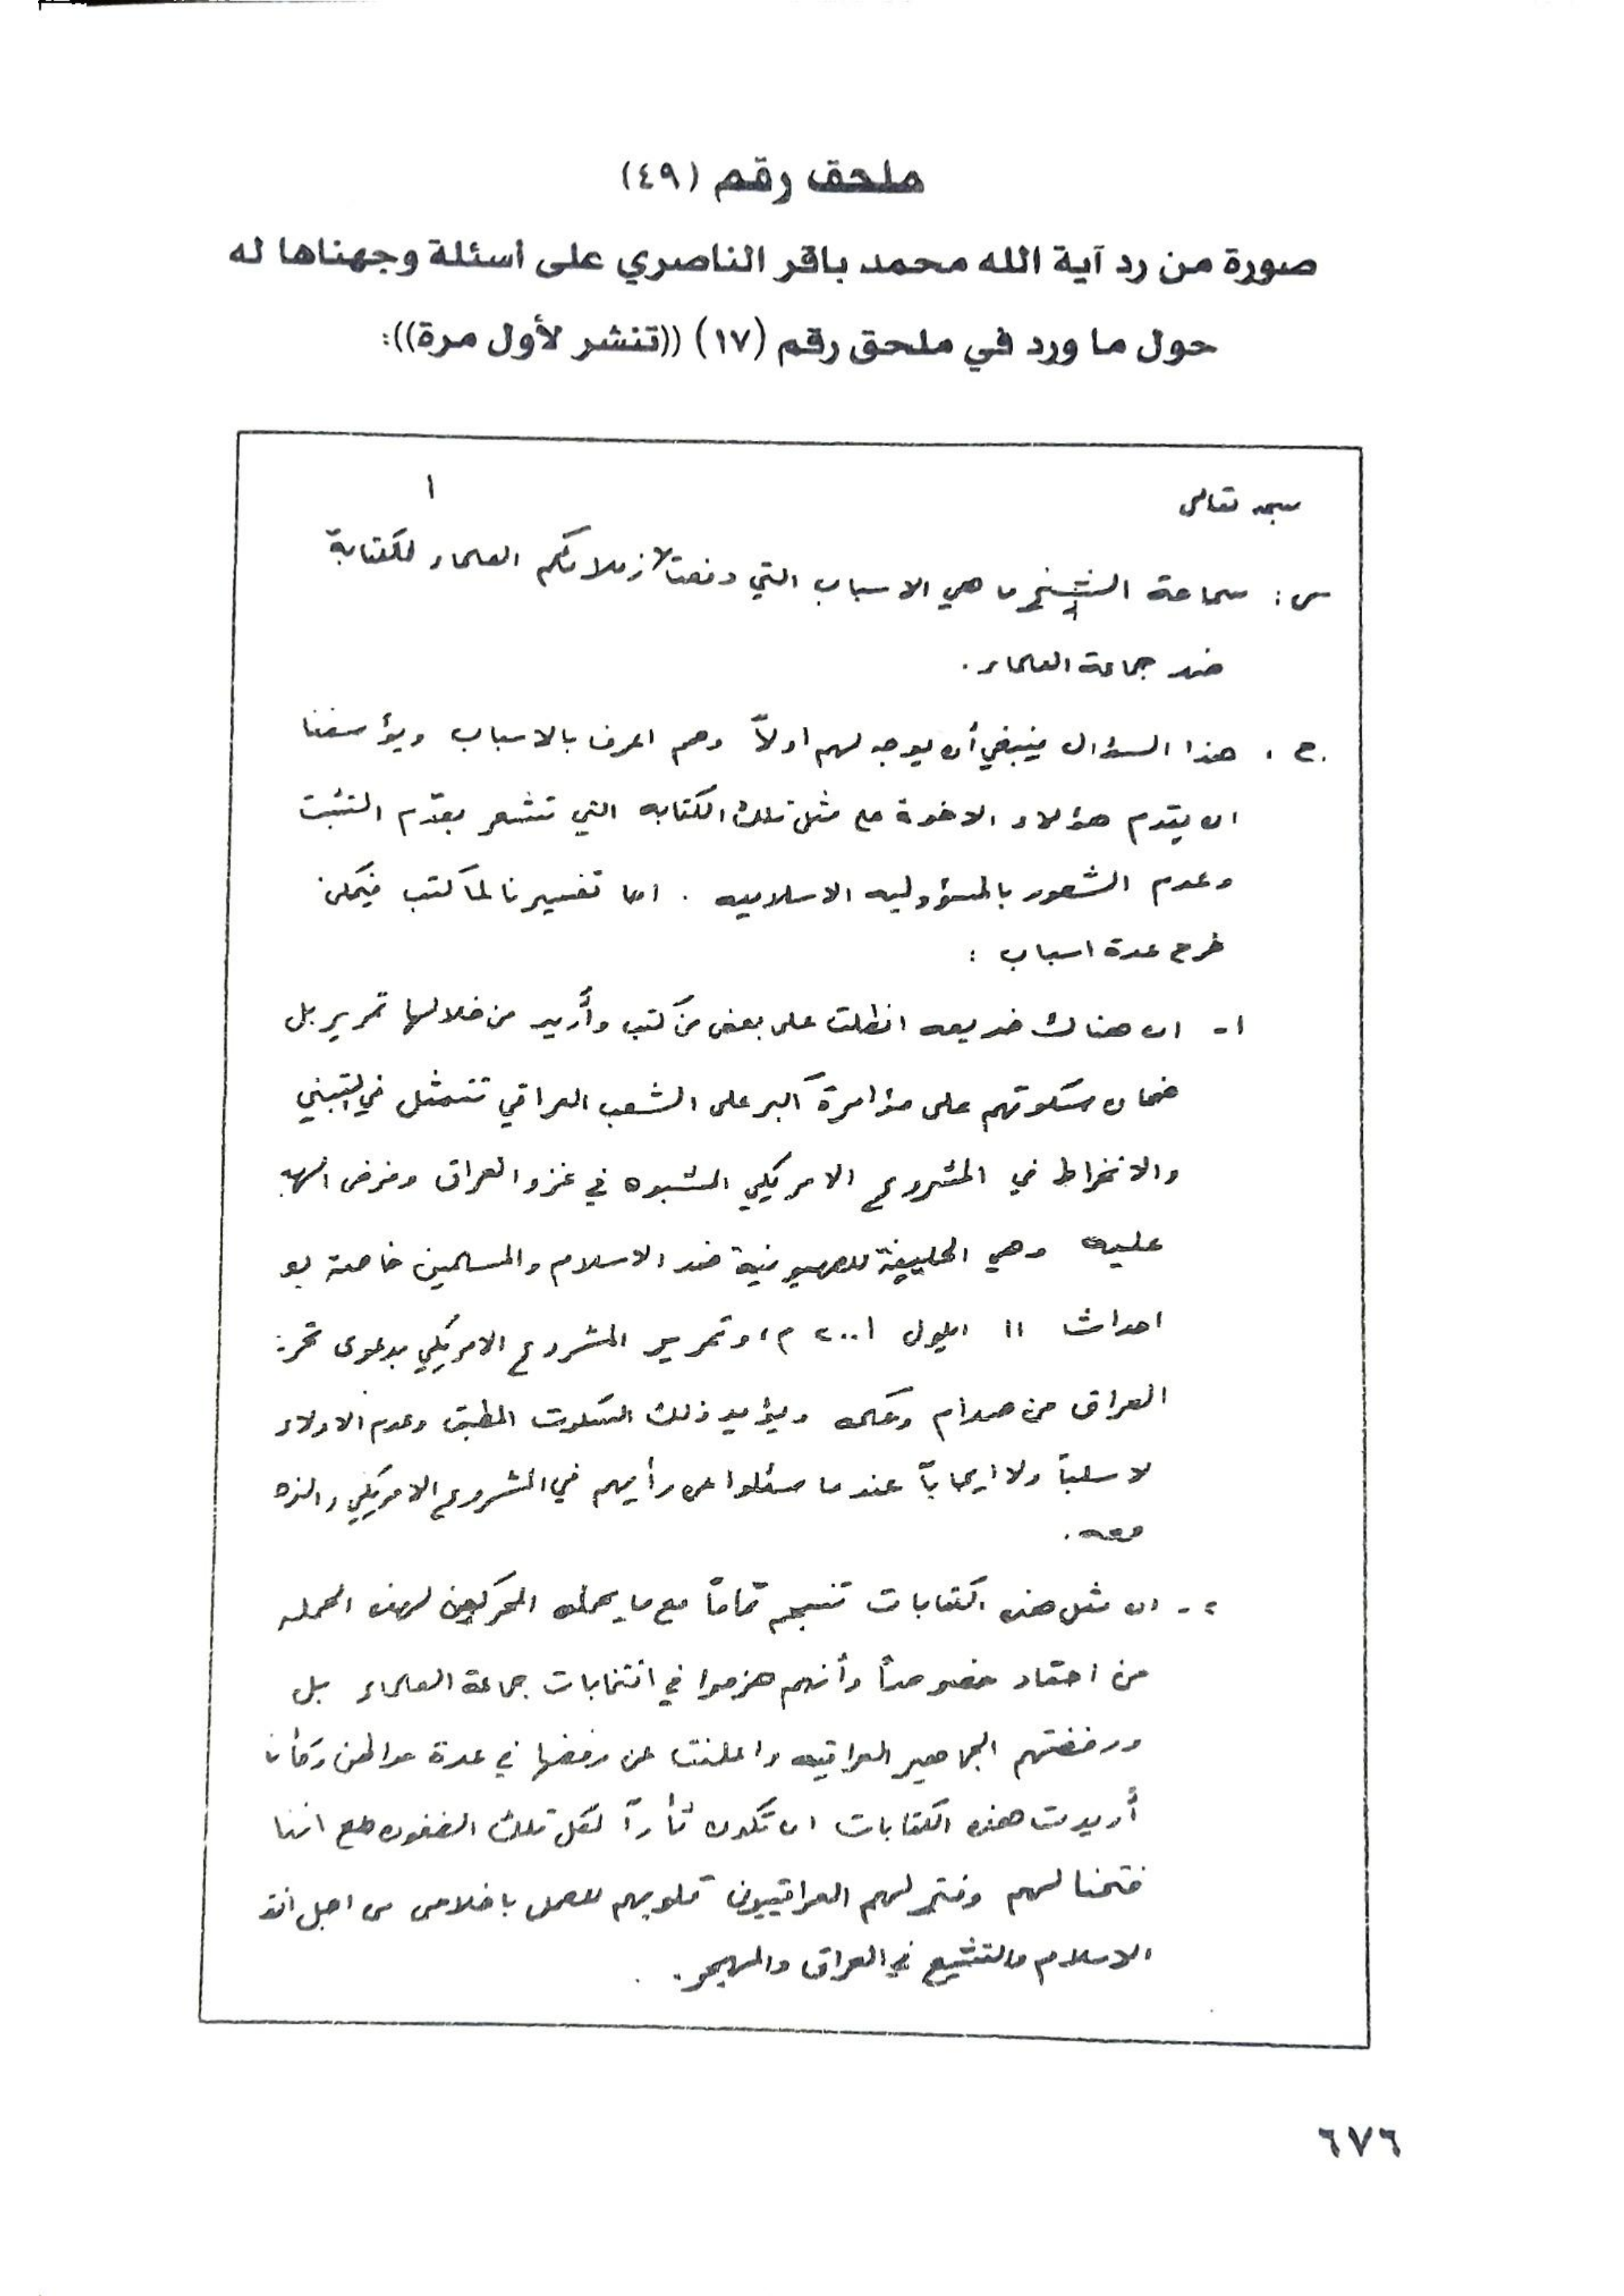 ملحق رقم (٤٩)
صورة من رد آية الله محمد باقر الناصري على أسئلة وجهناها له
حول ما ورد في ملحق رقم (١٧) ((تنشر لأول مرة)):
١
بسمه تعالى
س: سماحة الشيخ ما هي الاسباب التي دفعت زملائكم العلماء للكتابة
ضد جماعة العلماء.
ج. هذا السؤال ينبغي أن يوجه لهم اولاً وهم اعرف بالاسباب ويؤسفنا
ان يقدم هؤلاء الاخوة على مثل تلك الكتابه التي تشعر بعدم التثبت
وعدم الشعور بالمسؤوليه الاسلاميه. اما تفسيرنا لما كتب فيمكن
طرح عدة اسباب:
١- ان هناك خديعه انطلت على بعض من كتب وأريد من خلالها تمرير بل
ضمان سكوتهم على مؤامرة أكبر على الشعب العراقي تتمثل في التبني
والانخراط في المشروع الامريكي المشبوه في غزو العراق وفرض
عليه وهي الحليفة للصهيونية ضد الاسلام والمسلمين خاصة
احداث ١١ ايلول ٢٠٠١ م، وتمرير المشروع الامريكي بدعوى
العراق من صدام ويؤيد ذلك السكوت المطبق وعدم الادلاء
لا سلباً ولا ايجاباً عندما سئلوا عن رأيهم في المشروع الامريكي
معه.
٢- ان مثل هذه الكتابات تنسجم تماماً مع ما يحمله المحركين لهذه الحمله
من احقاد خصوصاً وأنهم هزموا في انتخابات جماعة العلماء بل
ورفضتهم الجماهير العراقيه واعلنت عن رفضها في عدة مواطن
أريدت هذه الكتابات ان تكون ثأراً لكل تلك الضغون مع اننا
فتحنا لهم وفتح لهم العراقييون قلوبهم للعمل باخلاص من اجل
الاسلام والتشيع في العراق والمهجر.
٦٧٦